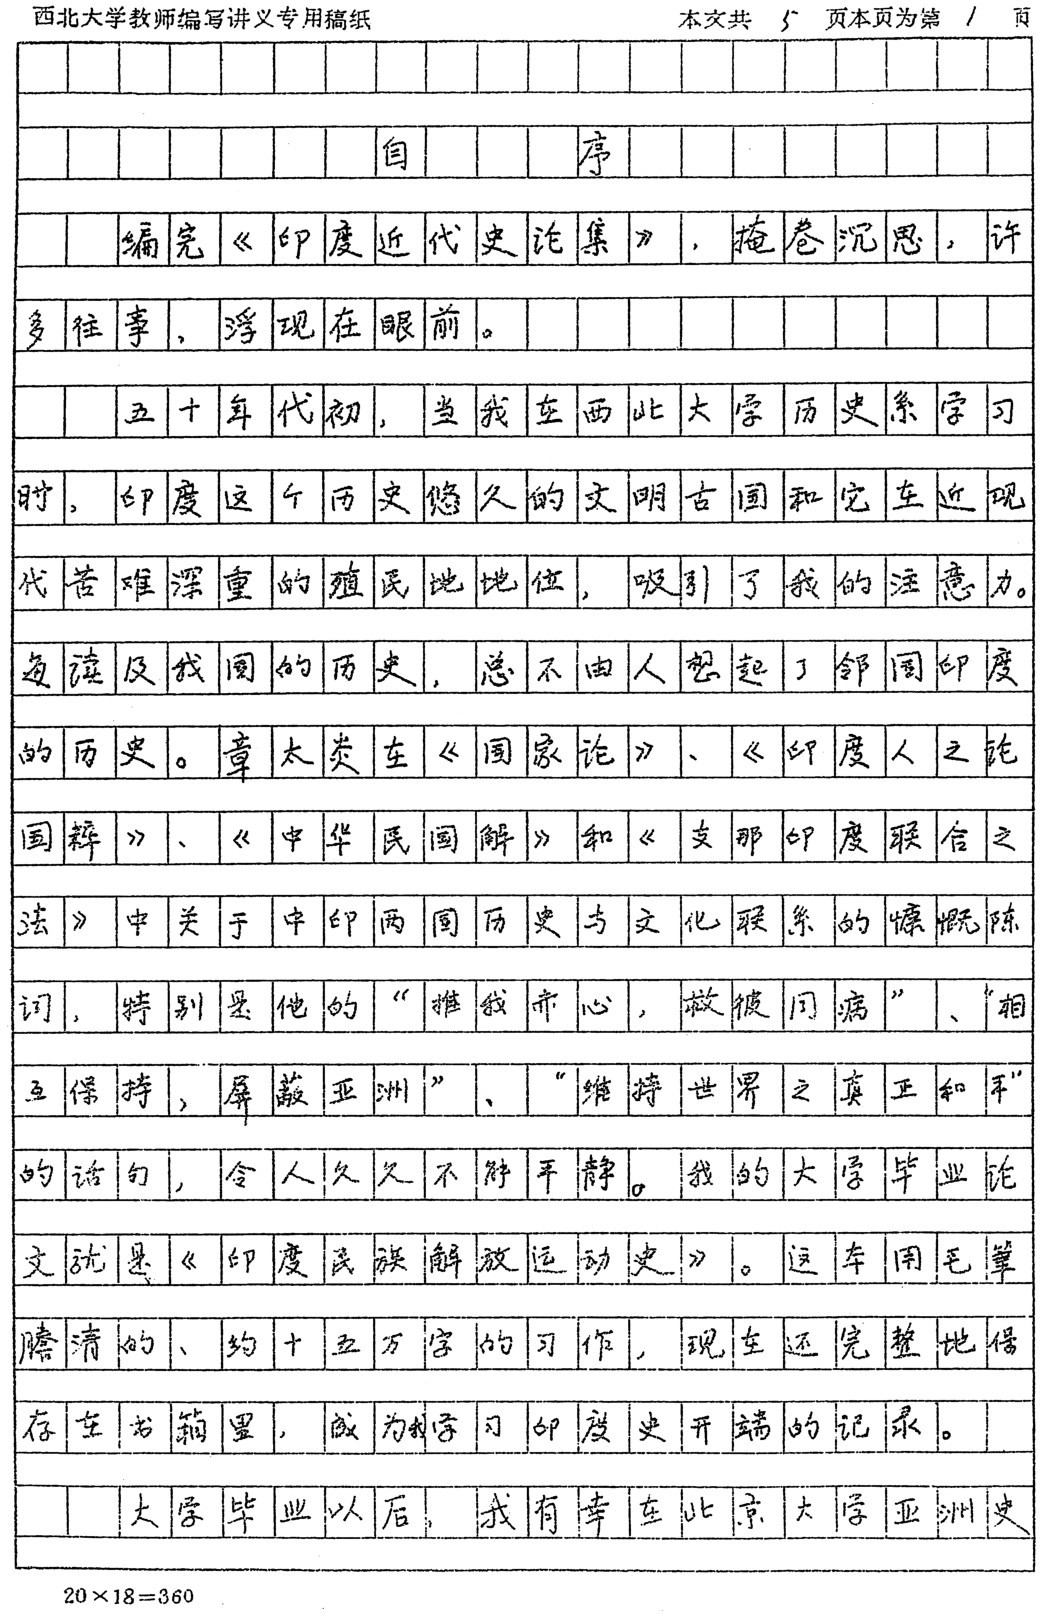 西北大学教师编写讲义专用稿纸 本文共 5 页本页为第 1 页
自 序
编完《印度近代史论集》，掩卷沉思，许
多往事，浮现在眼前。
五十年代初，当我在西北大学历史系学习
时，印度这个历史悠久的文明古国和它在近现
代苦难深重的殖民地地位，吸引了我的注意力。
每读及我国的历史，总不由人想起了邻国印度
的历史。章太炎在《国家论》、《印度人之论
国粹》、《中华民国解》和《支那印度联合之
法》中关于中印两国历史与文化联系的慷慨陈
词，特别是他的“推我赤心，救彼同病”、“相
互保持，屏蔽亚洲”、“维持世界之真正和平”
的话句，令人久久不能平静。我的大学毕业论
文就是《印度民族解放运动史》。这本用毛笔
誊清的、约十五万字的习作，现在还完整地保
存在书箱里，成为我学习印度史开端的记录。
大学毕业以后，我有幸在北京大学亚洲史
20×18=360